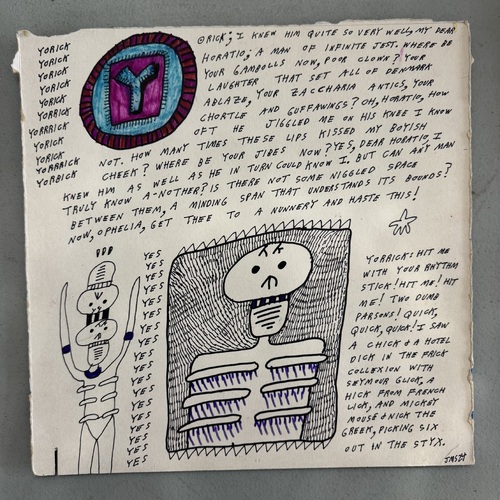 YORICK
YORICK
YORICK
YORICK
YORICK
YORRICK
YORRRICK
YORICK
YORICK
YORRRICK
YORBICK
Y
ORICK; I KNEW HIM QUITE SO VERY WELL, MY DEAR
HORATIO; A MAN OF INFINITE JEST. WHERE BE
YOUR GAMBOLLS NOW, POOR CLOWN? YOUR
LAUGHTER THAT SET ALL OF DENMARK
ABLAZE, YOUR ZACCHARIA ANTICS, YOUR
CHORTLE AND GUFFAWINGS? OH, HORATIO, HOW
OFT HE JIGGLED ME ON HIS KNEE I KNOW
NOT. HOW MANY TIMES THESE LIPS KISSED MY BOYISH
CHEEK? WHERE BE YOUR JIBES NOW? YES, DEAR HORATIO I
KNEW HIM AS WELL AS HE IN TURN COULD KNOW I, BUT CAN ANY MAN
TRULY KNOW A-NOTHER? IS THERE NOT SOME NIGGLED SPACE
BETWEEN THEM, A MINDING SPAN THAT UNDERSTANDS ITS BOUNDS?
NOW, OPHELIA, GET THEE TO A NUNNERY AND HASTE THIS!
YES
YES
YES
YES
YES
YES
YES
YES
YES
YES
YES
YES
YES
YES
YES
YES
YES
YES
YORRICK: HIT ME
WITH YOUR RHYTHM
STICK! HIT ME! HIT
ME! TWO DUMB
PARSONS! QUICK,
QUICK, QUICK! I SAW
A CHICK & A HOTEL
DICK IN THE FRICK
COLLEXION WITH
SEYMOUR GLICK, A
HICK FROM FRENCH
LICK, AND MICKEY
MOUSE & NICK THE
GREEK, PICKING SIX
OUT IN THE STYX.